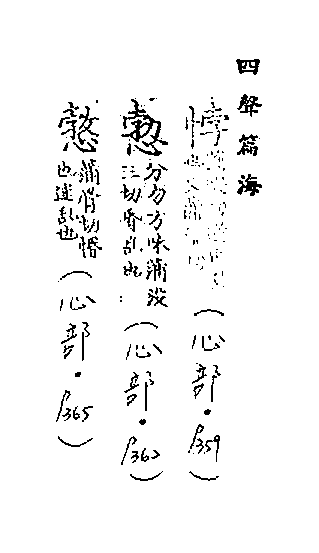 四聲篇海
悖
(心部・P359)
愂
分勿方味蒲没
三切昏乱也
(心部・P362)
蒲骨切惛
也迷乱也
(心部・P365)